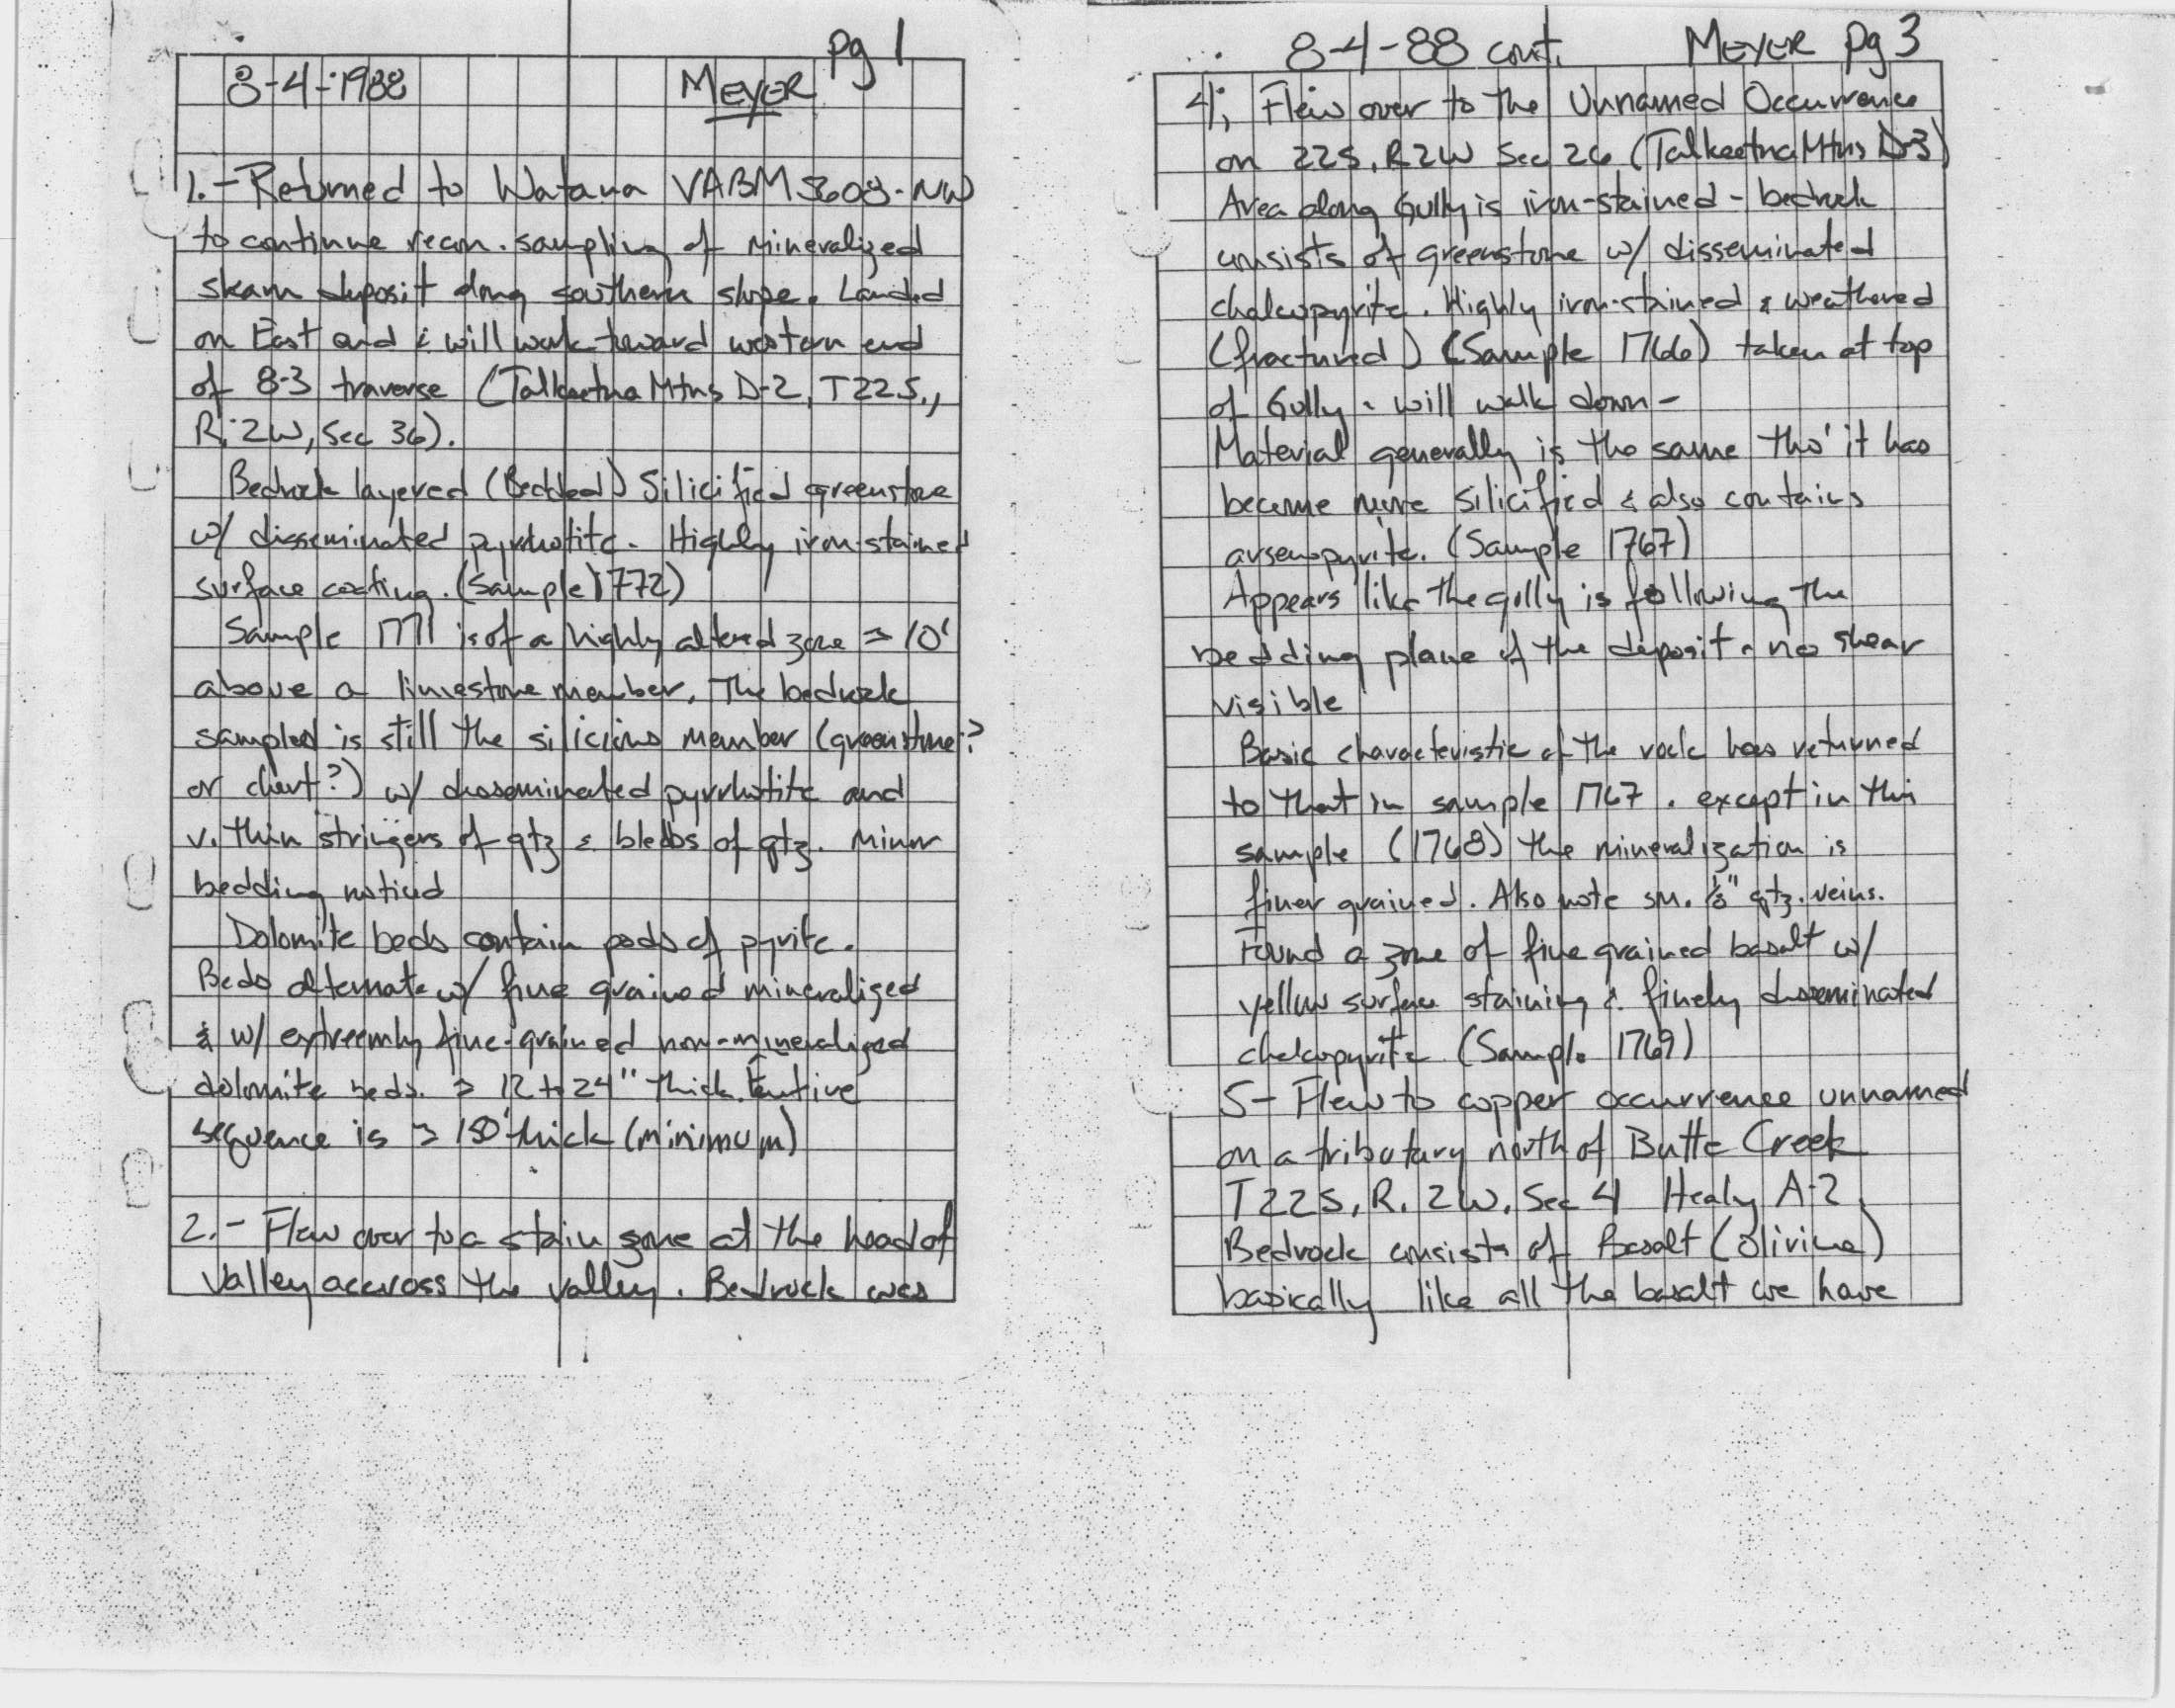 pg 1
8-4-1988 MEYER
1.- Returned to Watana VABM 5608-NW
to continue recon. sampling of mineralized
skarn deposit along southern slope. Landed
on East end & will work toward western end
of 8-3 traverse (Talkeetna Mtns D-2, T22S.,
R. 2W, Sec 36).
Bedrock layered (Bedded) Silicified greenstone
w/ disseminated pyrrhotite. Highly iron-stained
surface coating. (Sample 1772)
Sample 1771 is of a highly altered zone ≈ 10'
above a limestone member. The bedrock
sampled is still the silicious member (greenstone?
or chert?) w/ disseminated pyrrhotite and
v. thin stringers of qtz & blebbs of qtz. Minor
bedding noticed
Dolomite beds contain pods of pyrite.
Beds alternate w/ fine grained mineralized
& w/ extreemly fine-grained non-mineralized
dolomite beds. ≈ 12 to 24" thick. Entire
sequence is ≈ 150' thick (minimum)
2.- Flew over to a stain zone at the head of
valley accross the valley. Bedrock was
8-4-88 cont. MEYER pg 3
4; Flew over to the Unnamed Occurrence
on 22S, R2W Sec 26 (Talkeetna Mtns D-3)
Area along Gully is iron-stained - bedrock
consists of greenstone w/ disseminated
chalcopyrite. Highly iron-stained & weathered
(fractured) (Sample 1766) taken at top
of Gully - will walk down -
Material generally is the same tho' it has
become more silicified & also contains
arsenopyrite. (Sample 1767)
Appears like the gully is following the
bedding plane of the deposit - no shear
visible
Basic characteristic of the rock has returned
to that in sample 1767. except in this
sample (1768) the mineralization is
finer grained. Also note sm. 1/8" qtz. veins.
Found a zone of fine grained basalt w/
yellow surface staining & finely disseminated
chalcopyrite (Sample 1769)
5- Flew to copper occurrence unnamed
on a tributary north of Butte Creek
T22S, R. 2W, Sec 4 Healy A-2
Bedrock consists of Basalt (Olivine)
basically like all the basalt we have